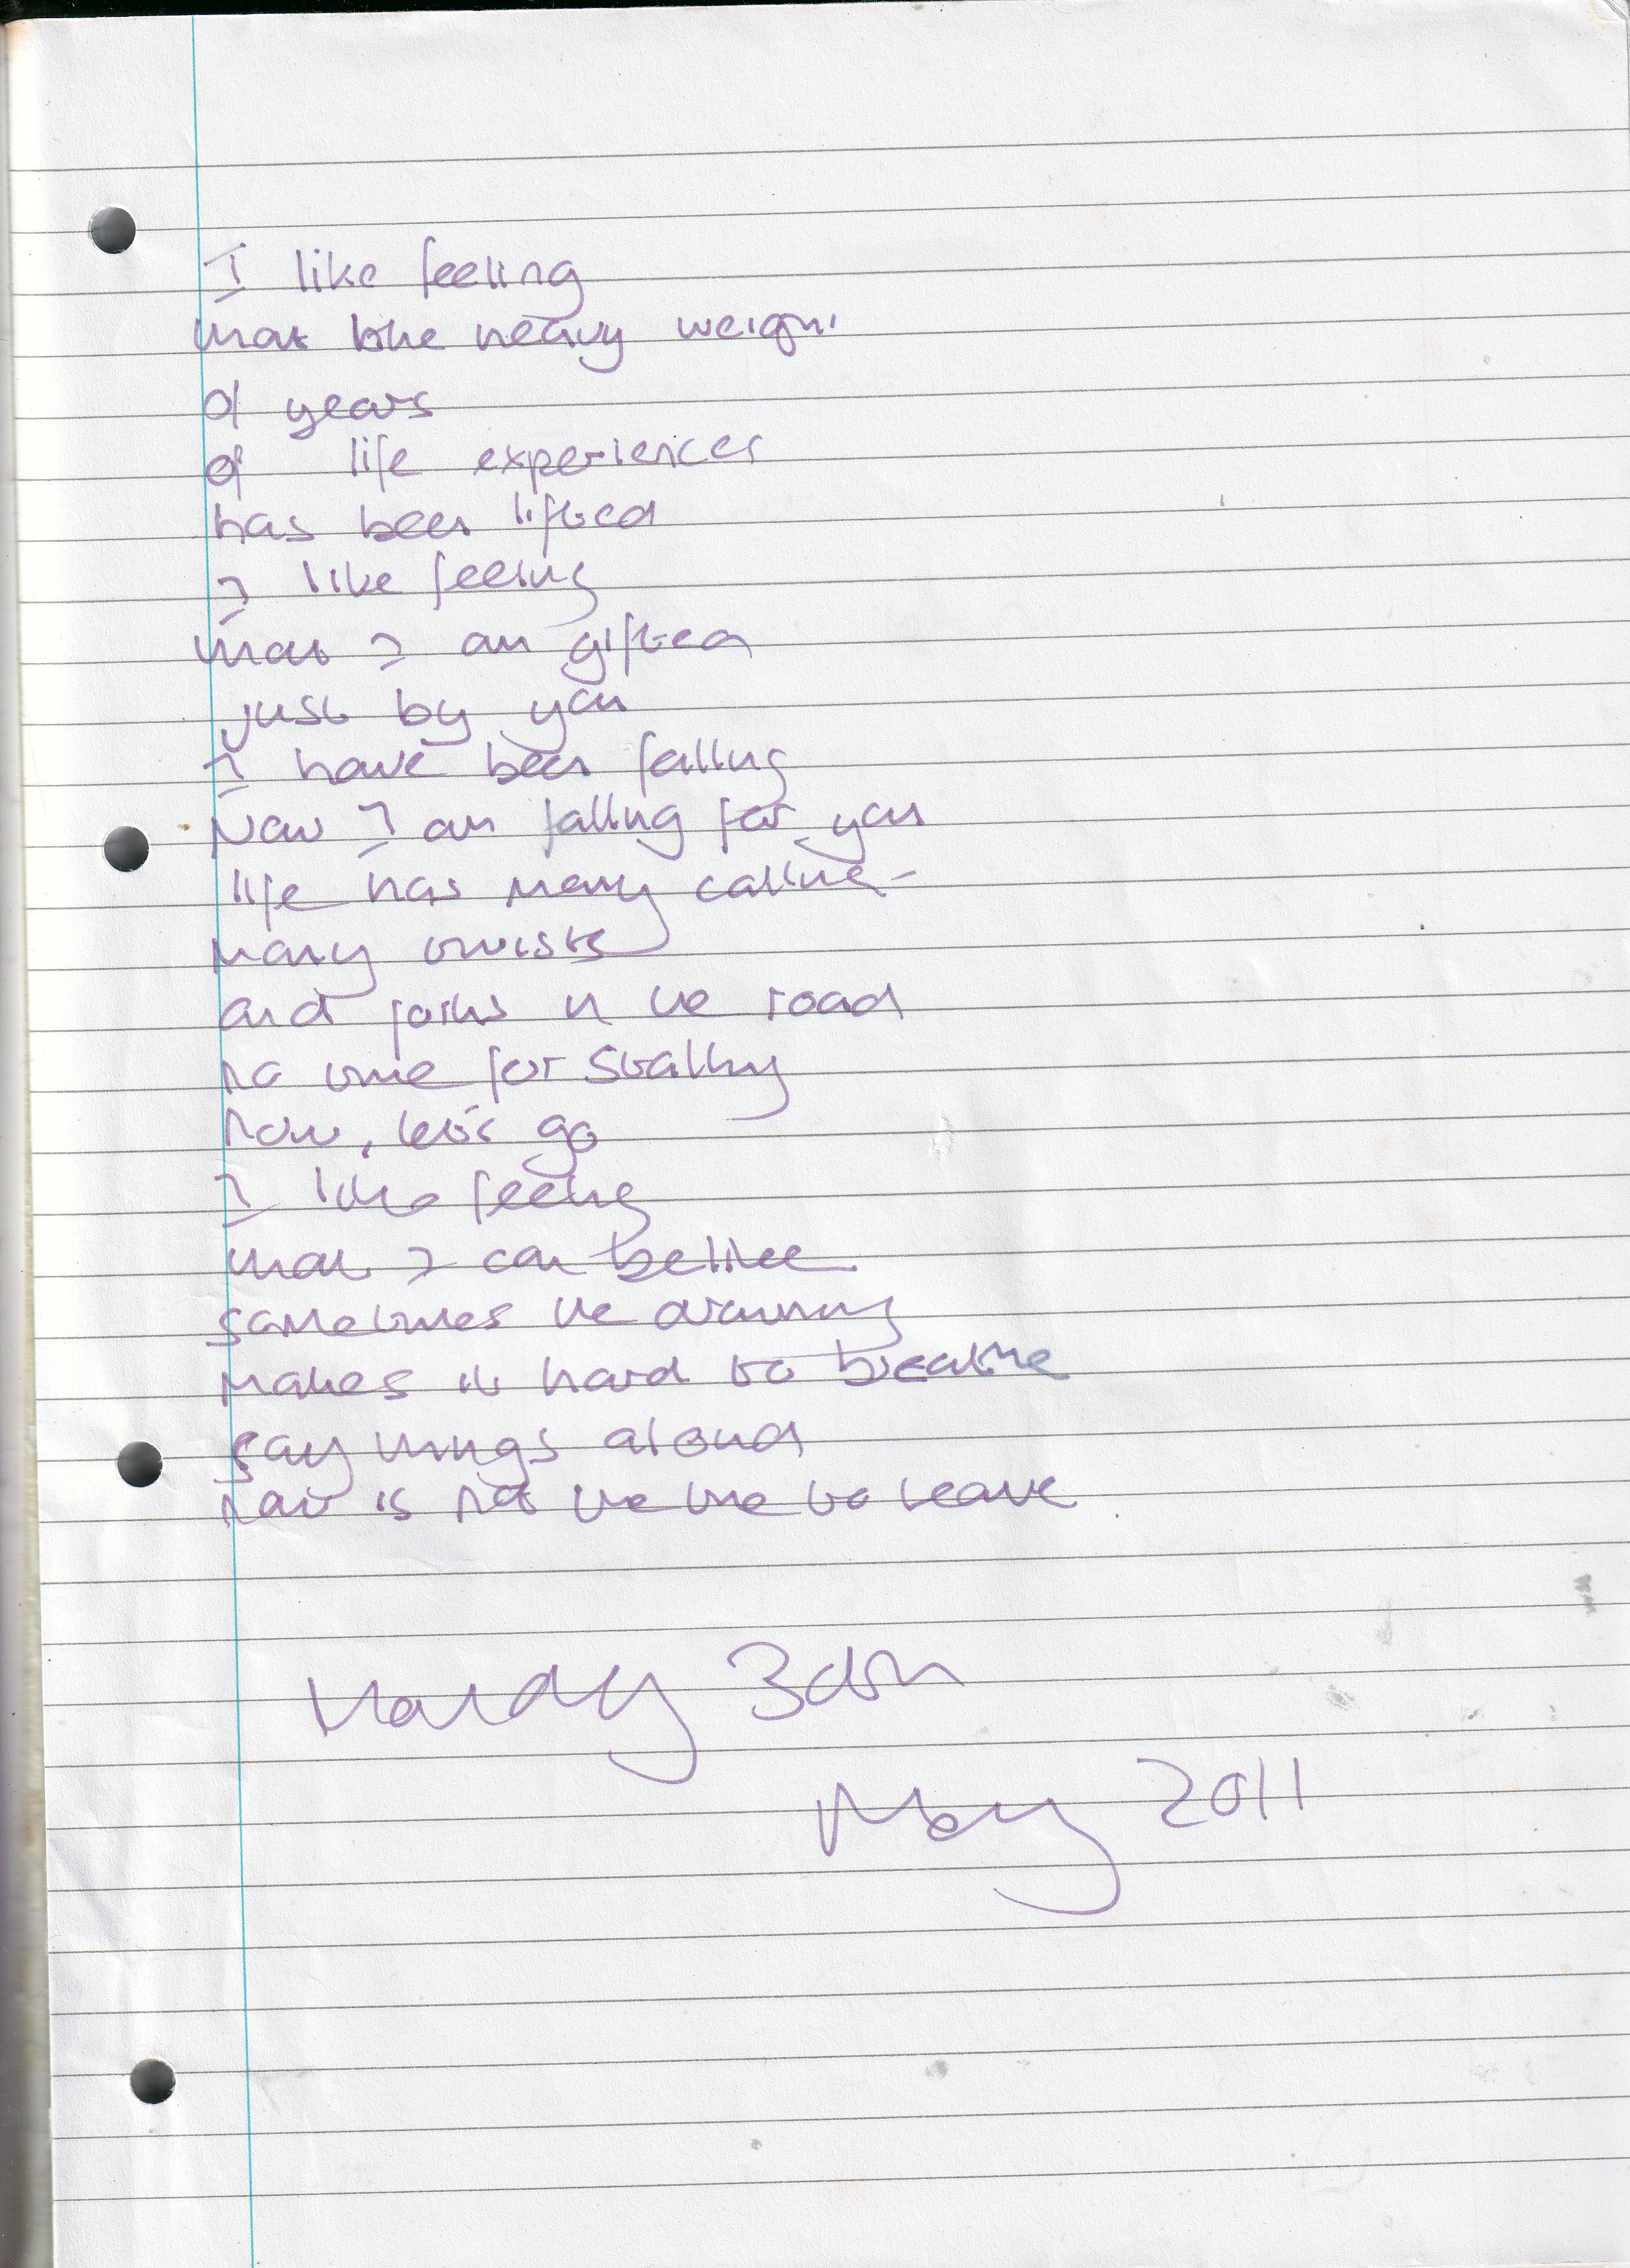 I like feeling
that the heavy weight
of years
of life experiences
has been lifted
I like feeling
that I am gifted
just by you
I have been falling
Now I am falling for you
life has many calling
many twists
and forks in the road
no time for stalling
now, let's go
I like feeling
that I can believe
sometimes the drumming
makes it hard to breathe
say things aloud
now is not the time to leave
May 2011